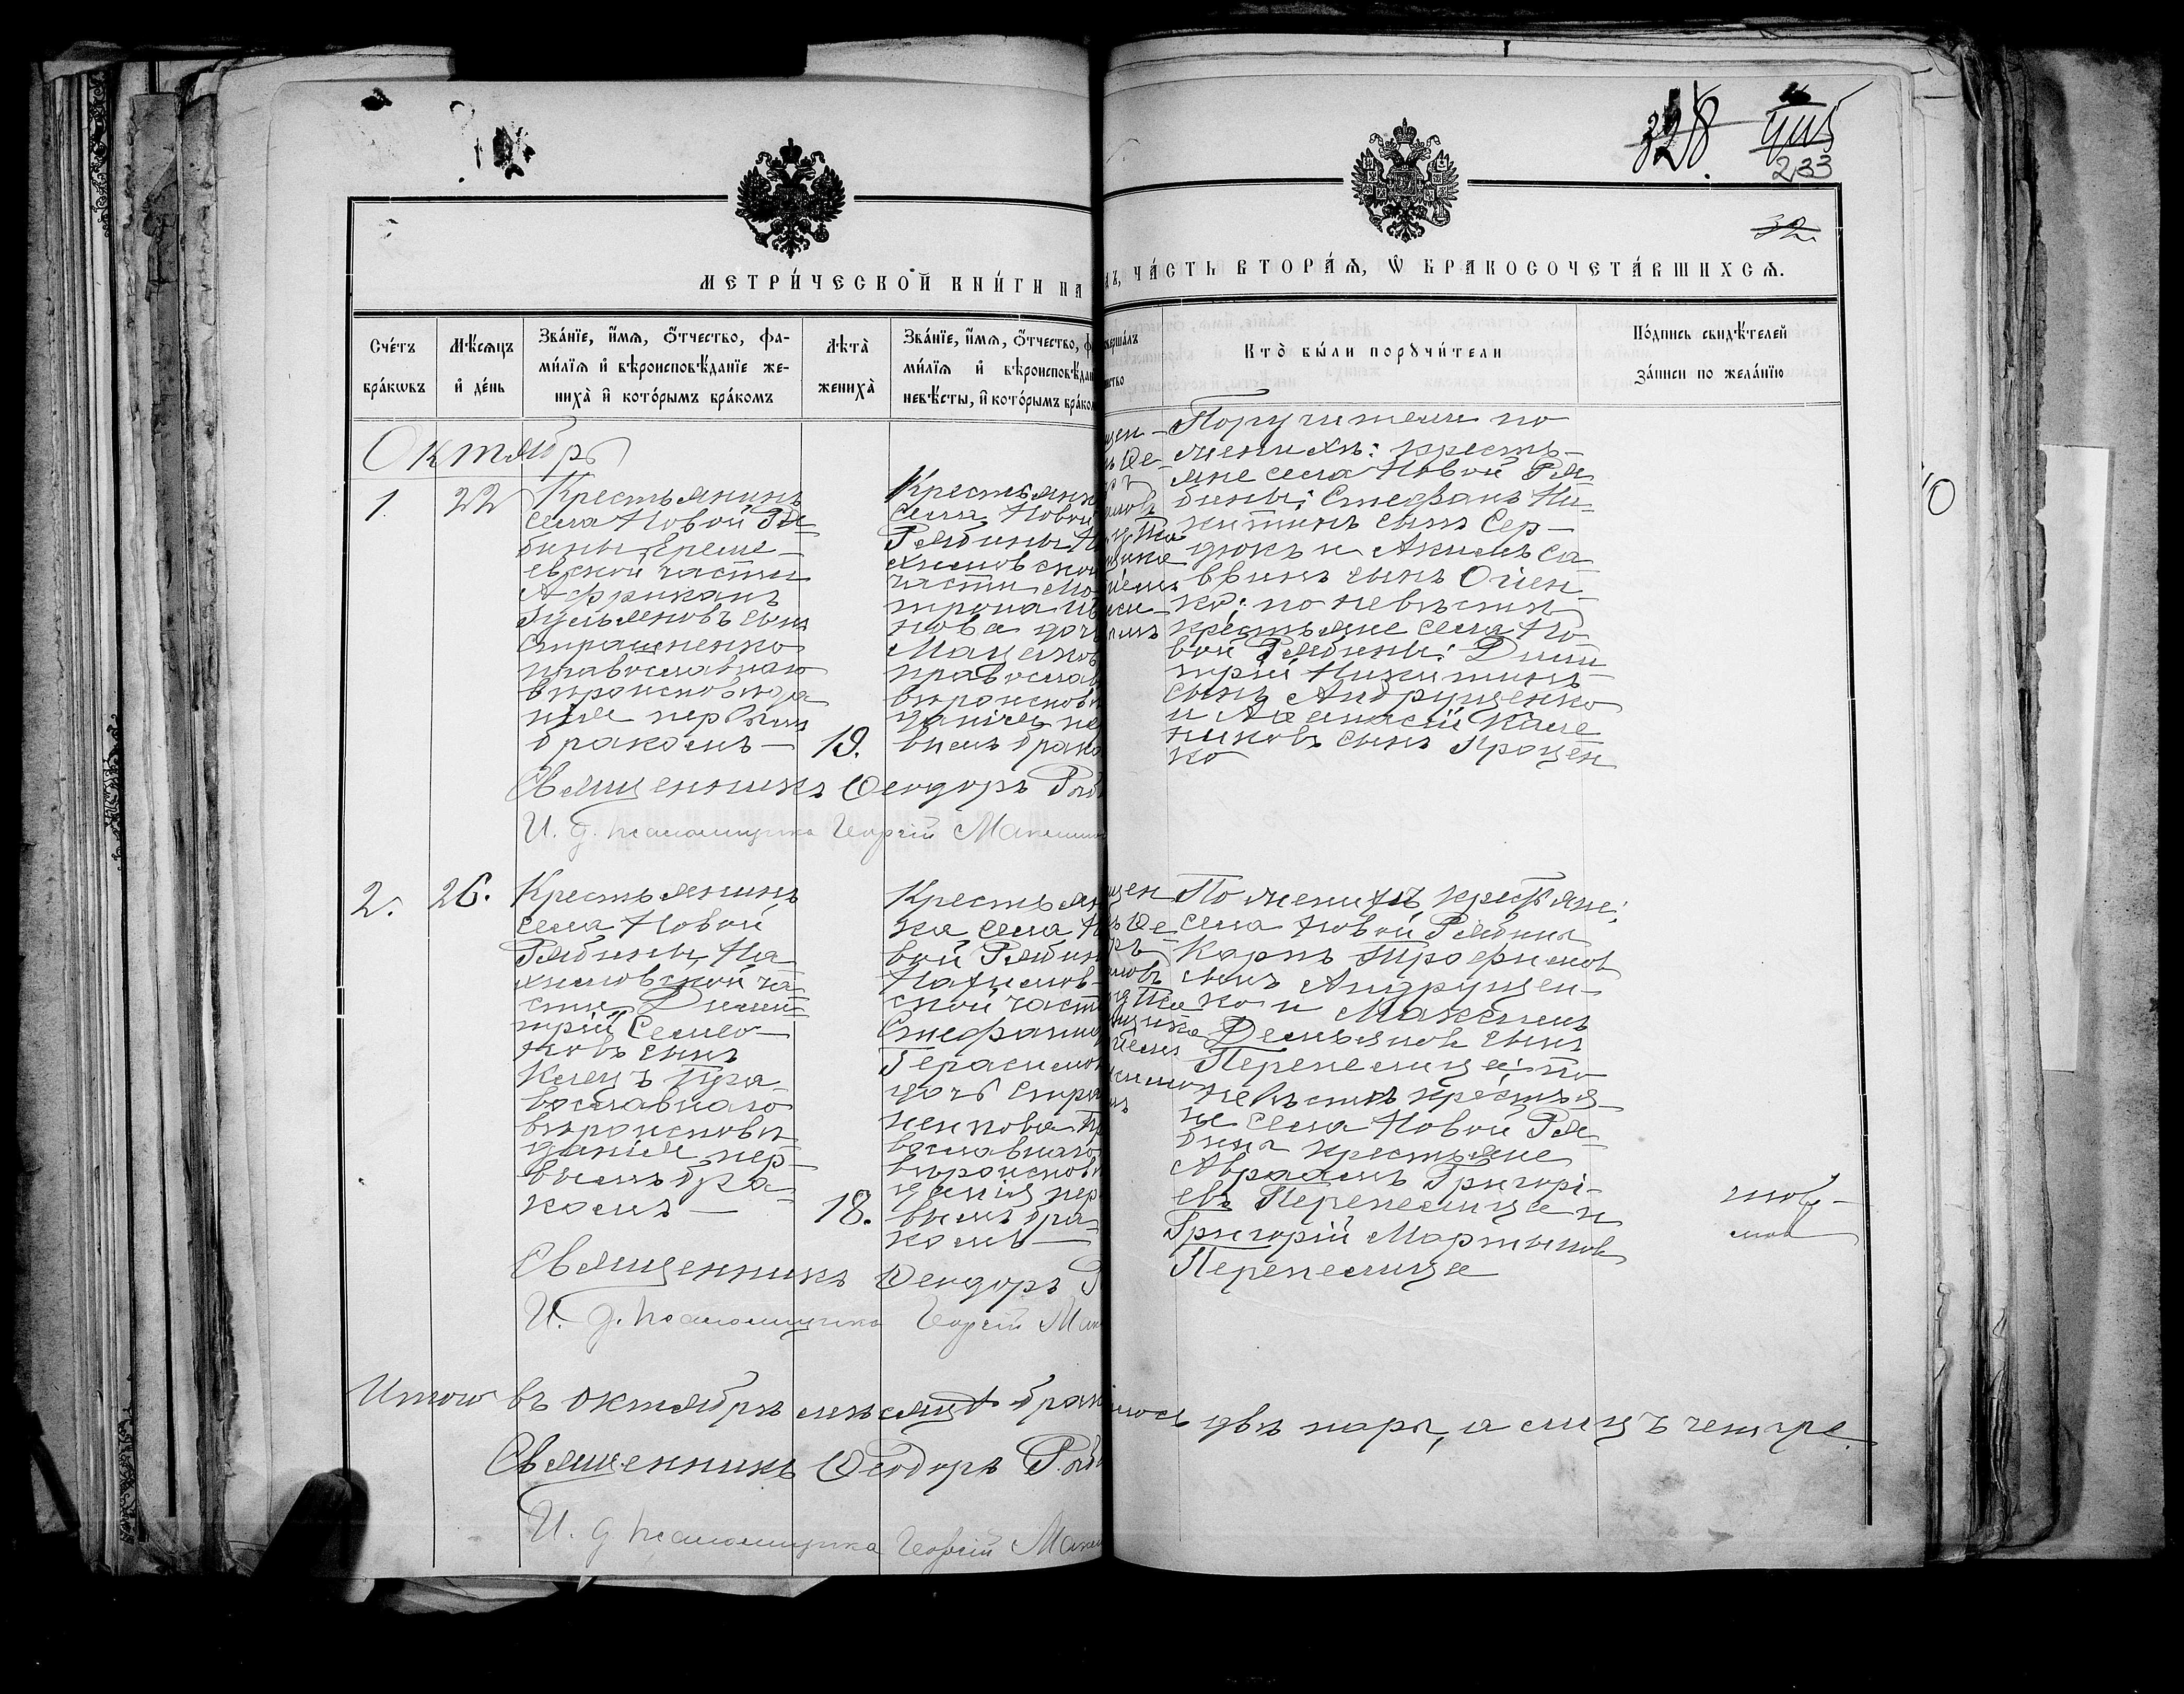 328.
233
32
МЕТРИ́ЧЕСКОЙ КНИ́ГИ НА
Ъ, ЧА́СТЬ ВТОРА́Ѧ, Ѽ БРАКОСОЧЕТА́ВШИХСѦ.
Сче́тъ бра́кѡвъ
Мѣ́сѧцъ и҆ де́нь
Зва́нїе, и҆́мѧ, ѻ҆́тчество, фа-
ми́лїѧ и҆ вѣроисповѣ́данїе же-
ниха̀ и҆ кото́рымъ бра́комъ
Лѣ́та̀ жениха̀
Зва́нїе, и҆́мѧ, ѻ҆́тчество, ф
ми́лїѧ и҆ вѣроисповѣ́дан
невѣ́сты, и҆ кото́рымъ бра́ко
Кто̀ бы́ли порꙋчи́тели
По́дпись свидѣ́телей
за́писи по жела́нїю
Октябрь
1. 22
Крестьянинъ
села Новой Ря-
бины, Ереме-
евской части
Африканъ
сынъ
Страшненко
православнаго
вѣроисповѣда
нія первымъ
бракомъ — 19.
Крестьянк
села Новой
Рябины На
химовской
части Мо
трона Ив
нова доч
Маценков
православ
вѣроисповѣ
данія пер
вымъ брако
Поручители по
женихѣ: кресть-
яне села Новой Ря
бины: Стефанъ Ни-
китинъ сынъ Сер-
дюкъ и Акимъ Са
ввинъ сынъ
ко; по невѣстѣ
крестьяне села Но
вой Рябины: Дими
трій Никитинъ
сынъ Андрущенко
и Аѳанасій Кале
никовъ сынъ Процен
ко
Священникъ Ѳеодоръ
И. д. псаломщика Георгій
2. 26.
Крестьянинъ
села Новой
Рябины, На
химовской ча
сти Дими
трій Семео-
новъ сынъ
Клецъ Пра
вославнаго
вѣроисповѣ
данія пер-
вымъ бра-
комъ — 18.
Крестьян
ка села Н
вой Рябин
Нахимов-
ской част
Стефани
Герасимов
дочь Стра
ненкова Пр
вославнаго
вѣроисповѣ
данія пер
вымъ бра-
комъ —
По женихѣ крестьяне:
села Новой Рябины
Карпъ Трофимов
сынъ Андрущен-
ко и Максимъ
Демьяновъ сынъ
Перепелица: по
невѣстѣ крестья-
не села Новой Ря-
бины крестьяне
Авраамъ Григорі-
евъ Перепелица и
Григорій Мартынов
Перепелица
Священникъ Ѳеодоръ
И. д. псаломщика Георгій
Итого въ октябрѣ мѣсяцѣ брак
лось двѣ пары, а лицъ четыре.
Священникъ Ѳеодоръ
И. д псаломщика Георгій